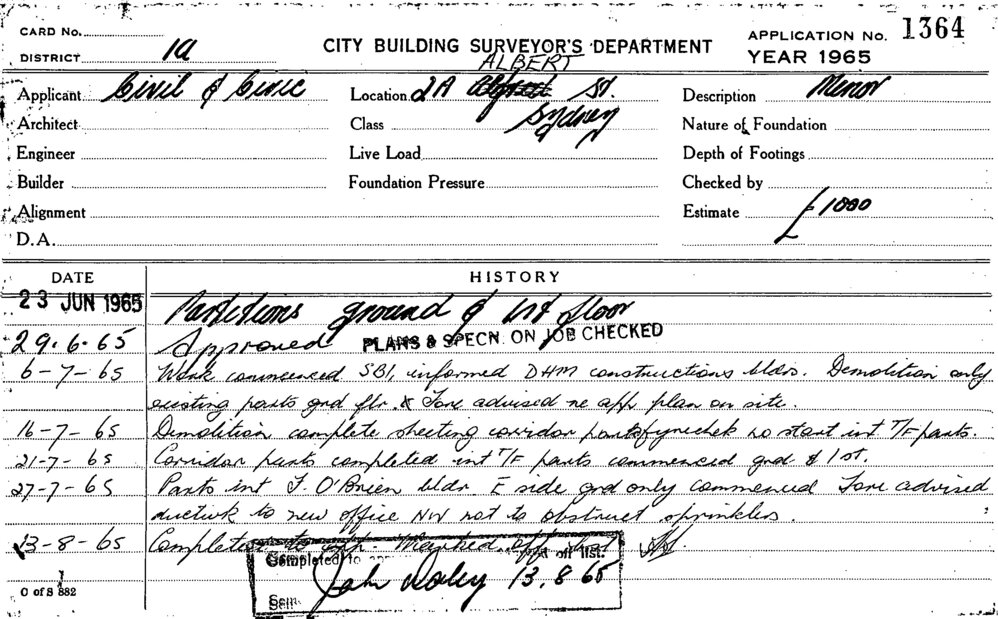 CARD No.
DISTRICT 1a
CITY BUILDING SURVEYOR'S DEPARTMENT
APPLICATION No. 1364
YEAR 1965
ALBERT
Applicant Civil & Civic
Location 2A Albert St.
Sydney
Description Minor
Architect
Class
Nature of Foundation
Engineer
Live Load
Depth of Footings
Builder
Foundation Pressure
Checked by
Alignment
Estimate £1000
D.A.
DATE HISTORY
23 JUN 1965 Partitions ground & 1st floor
29.6.65 Approved PLANS & SPECN. ON JOB CHECKED
6-7-65 Work commenced SBI, informed DHM constructions bldrs. Demolition only
existing parts grd flr. & Fore advised re app plan on site.
16-7-65 Demolition complete sheeting corridor parts no start int T/F parts.
21-7-65 Corridor parts completed int T/F parts commenced grd & 1st.
27-7-65 Parts int J. O'Brien bldr E side grd only commenced Fore advised
ductwk to new office NW not to obstruct sprinklers.
13-8-65 Completed to app. Marked off
Completed to off list.
John 13.8.65
C of S 882